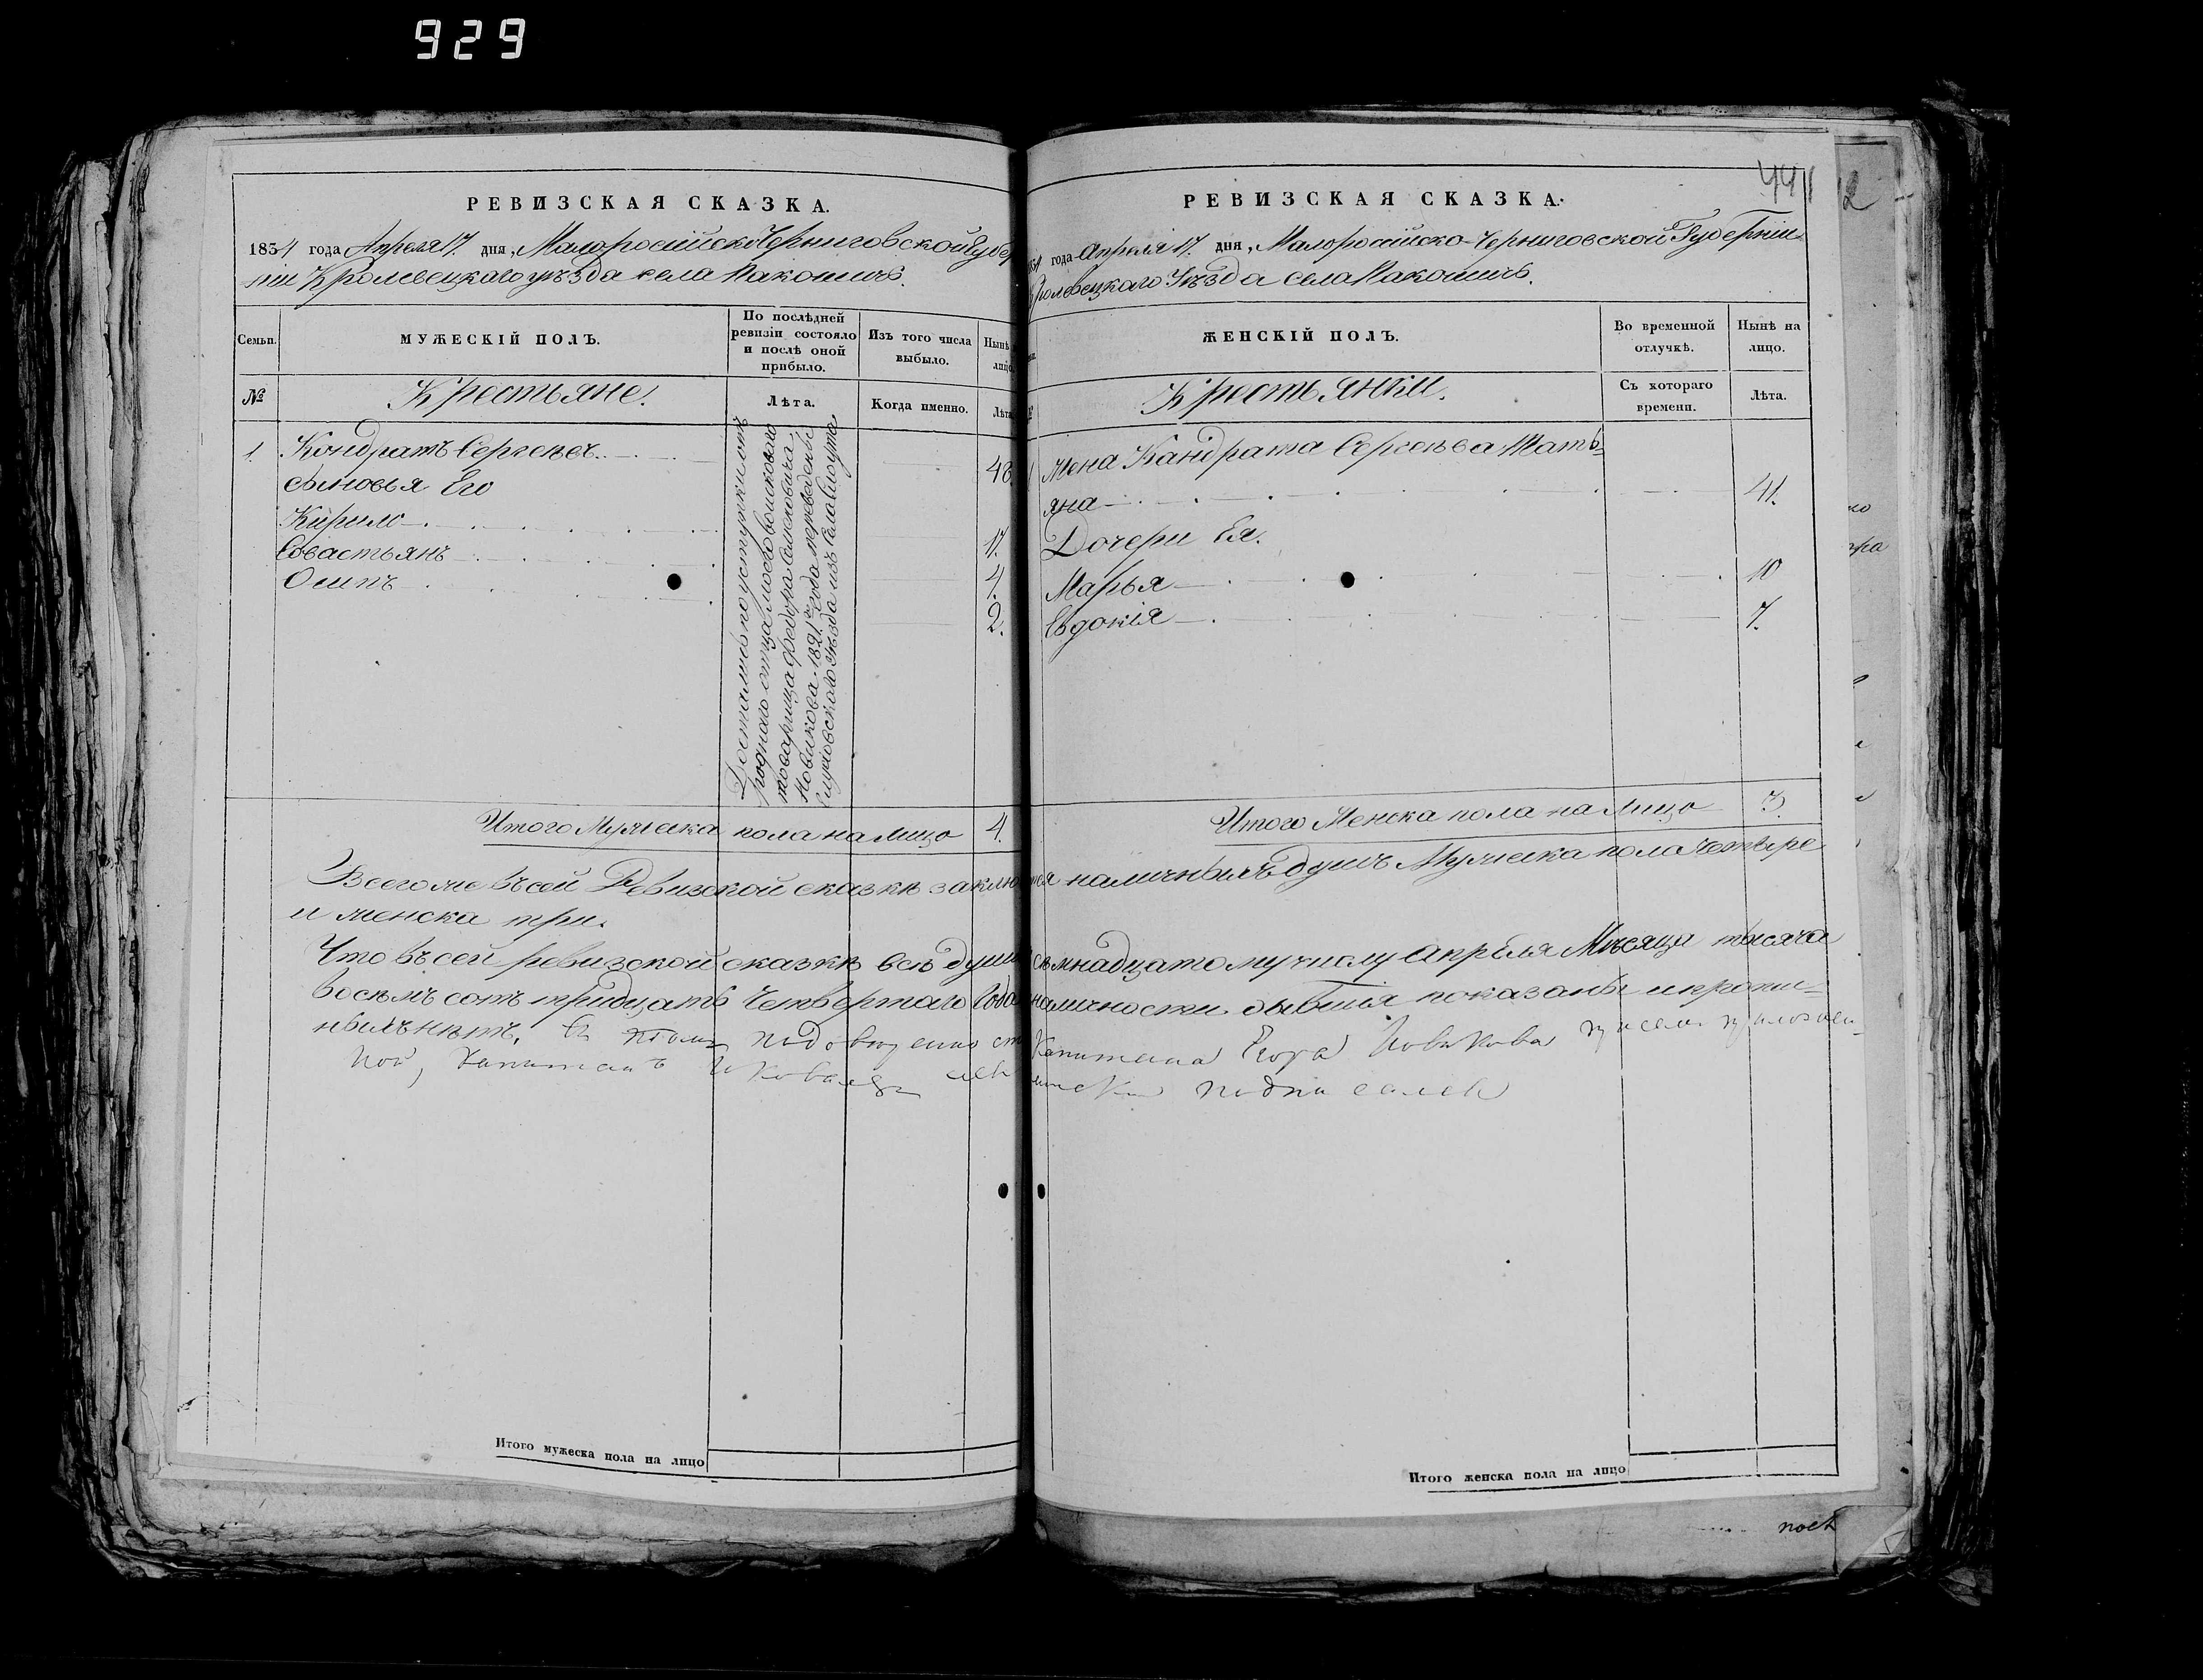 929
441
2
РЕВИЗСКАЯ СКАЗКА.
1834 года Апреля 17. дня, Малоросейско Черниговской Губер
ніи Кролевецкаго уѣзда села Макошинъ.
Семьи.
МУЖЕСКІЙ ПОЛЪ.
По послѣдней ревизіи состояло и послѣ оной прибыло.
Изъ того числа выбыло.
Нынѣ лицо.
№
Крестьяне.
Лѣта.
Когда именно.
Лѣта
1. Кондратъ Сергеевъ. 48.
сыновья Его
Кирило 17.
Севастьянъ 4.
Осипъ 2.
Достались по уступки отъ
роднаго отца моего войсковаго
товарища Федора Алексеевича
Новикова 1821го года переведены
уѣзда изъ Села
Итого Мужеска пола на лицо 4.
РЕВИЗСКАЯ СКАЗКА.
года Апреля 17. дня, Малоросійско-Черниговской Губерніи
Кролевецкаго Уѣзда села Макошинъ.
ЖЕНСКІЙ ПОЛЪ.
Во временной отлучкѣ.
Нынѣ на лицо.
Крестьянки.
Съ котораго времени.
Лѣта.
1 Жена Кандрата Сергеева Тать-
яна 41.
Дочери Ея.
Марья 10
Евдокія 7.
Итого Женска пола на Лицо 3.
Всего же въ сей Ревизской сказкѣ заключ тся наличныхъ душъ Мужеска пола четыре
и женска три.
Что въ сей ревизской сказкѣ всѣ души семнадцатому числу Апреля Мѣсяца тысяча
восемъ сотъ тридцать Четвертаго Года наличности бывшія показаны и пропи-
ныхъ нѣтъ. въ томъ Капитана Егора Новикова
Капитанъ подписалъ
Итого мужеска пола на лицо
Итого женска пола на лицо